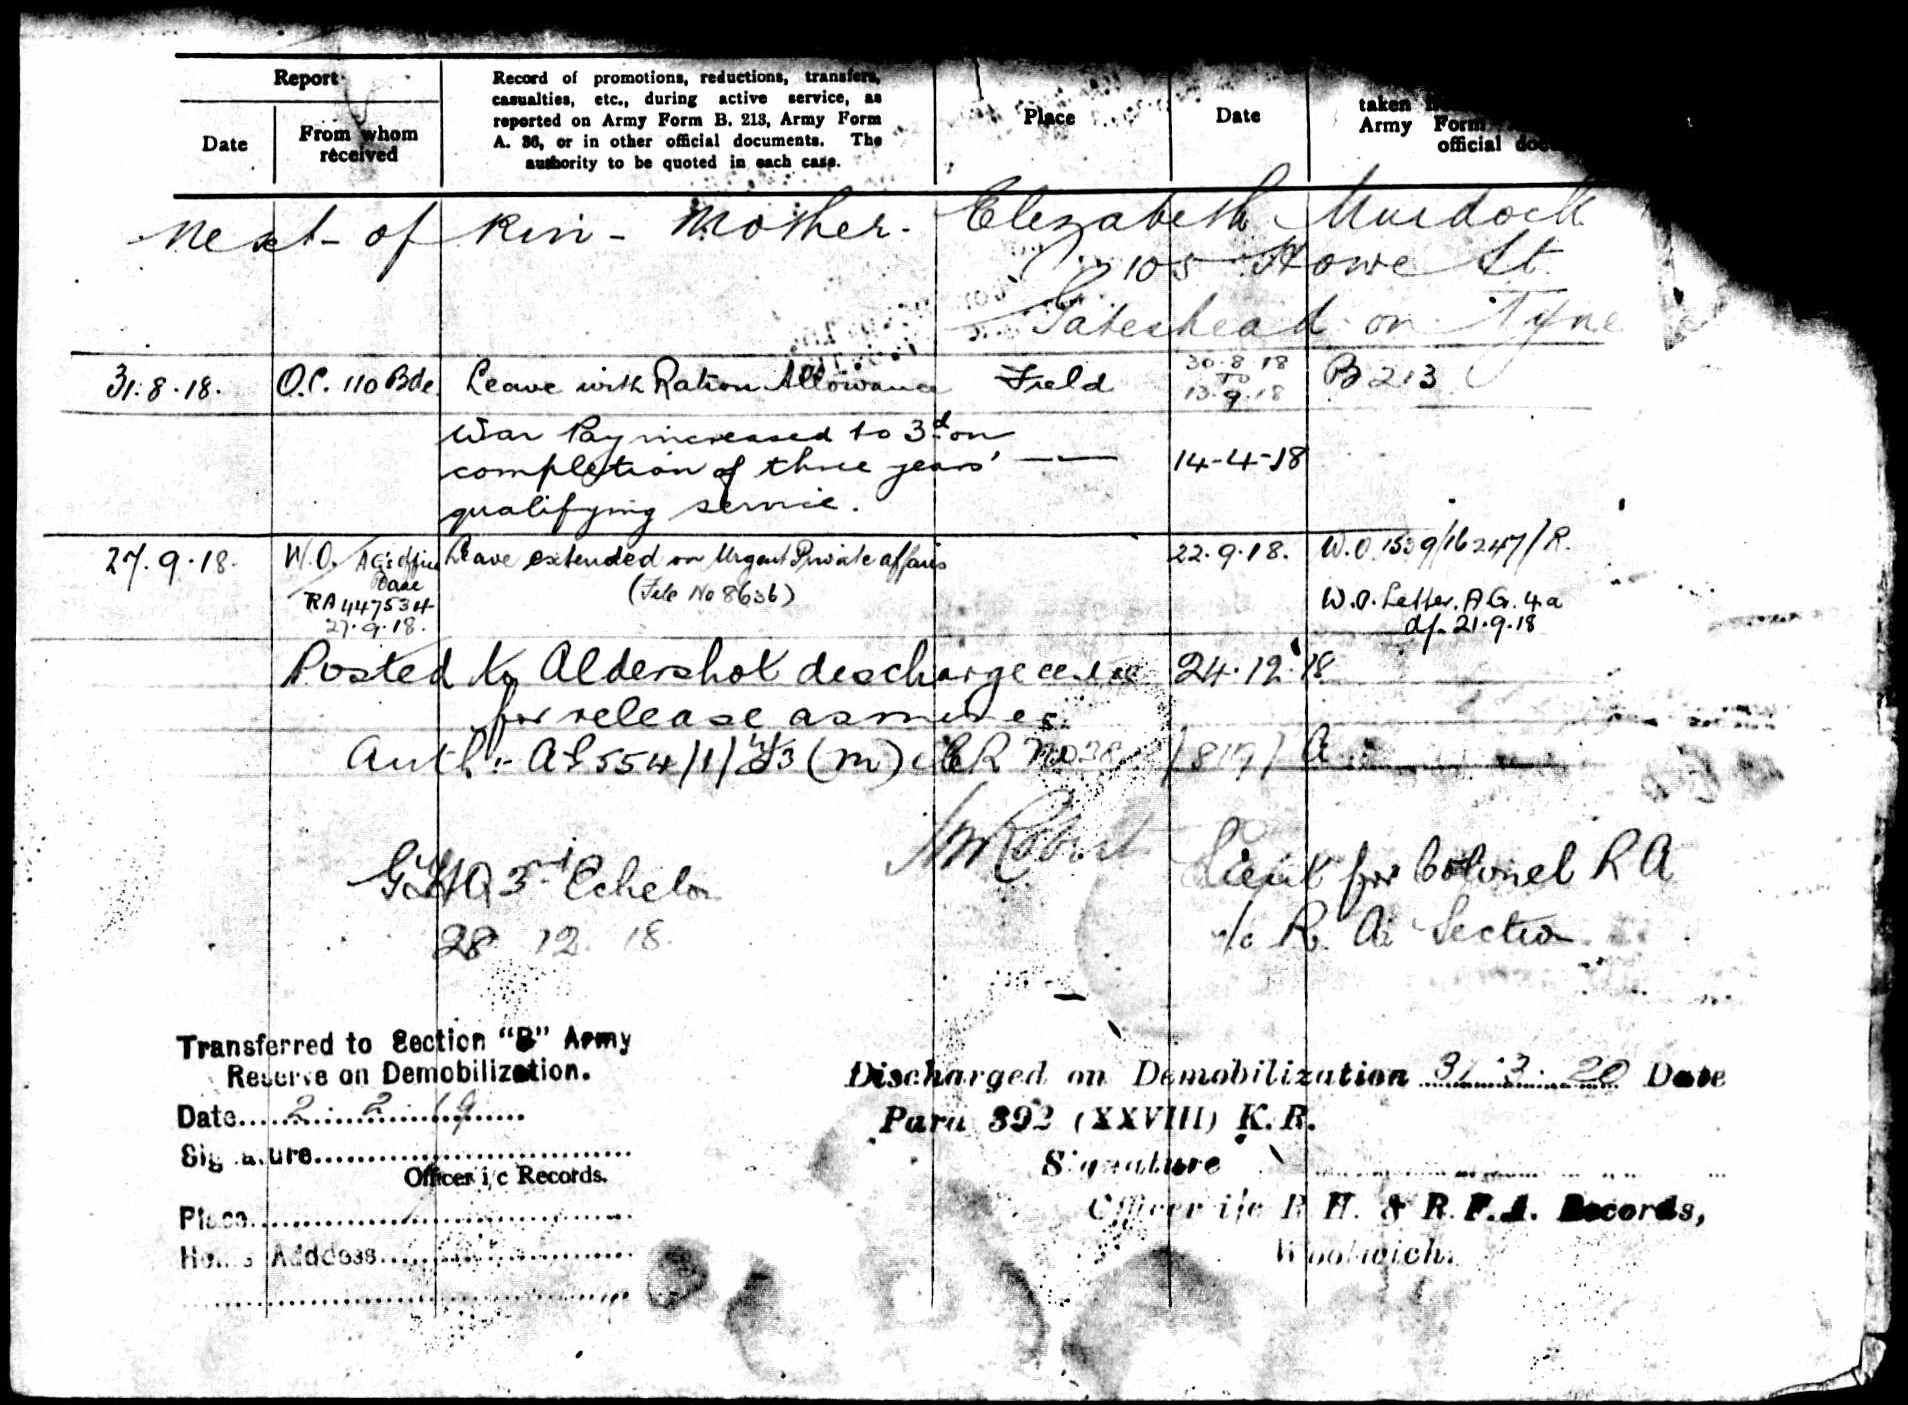 Report
Date
From whom
received
Record of promotions, reductions, transfers,
casualties, etc., during active service, as
reported on Army Form B. 213, Army Form
A. 36, or in other official documents. The
authority to be quoted in each case.
Place
Date
taken
Army Form
official
Next of Kin - Mother. Elezabeth Murdock
105 Howe St
Gateshead on Tyne
31.8.18. O.C. 110 Bde. Leave with Ration Allowance Field 30.8.18 B 213
TO
13.9.18
War Pay increased to 3d on
completion of three years' —— 14-4-18
qualifying service.
27.9.18. W.O. AG's Office Leave extended on Urgent Private affairs 22.9.18. W.O. 1539/16247/R.
Base (File No 8636)
RA 447534 W.O. Letter. A.G. 4a
27.9.18. d/- 21.9.18
Posted to Aldershot descharge centre 24.12.18
for release as miner
Auth:- AG 554/1/ (m) CR No 38 /819/ A
GHQ 3rd Echelon Lieut for Colonel R A
28 12 18. i/c R. A. Section
Transferred to Section "B" Army
Reserve on Demobilization.
Date....2.2.19......
Signature..............................
Officer i/c Records.
Place..............................
Home Address..............................
Discharged on Demobilization 31.3.20 Date
Para 392 (XXVIII) K.R.
Signature
Officer i/c R H. & R.F.A. Records,
Woolwich.